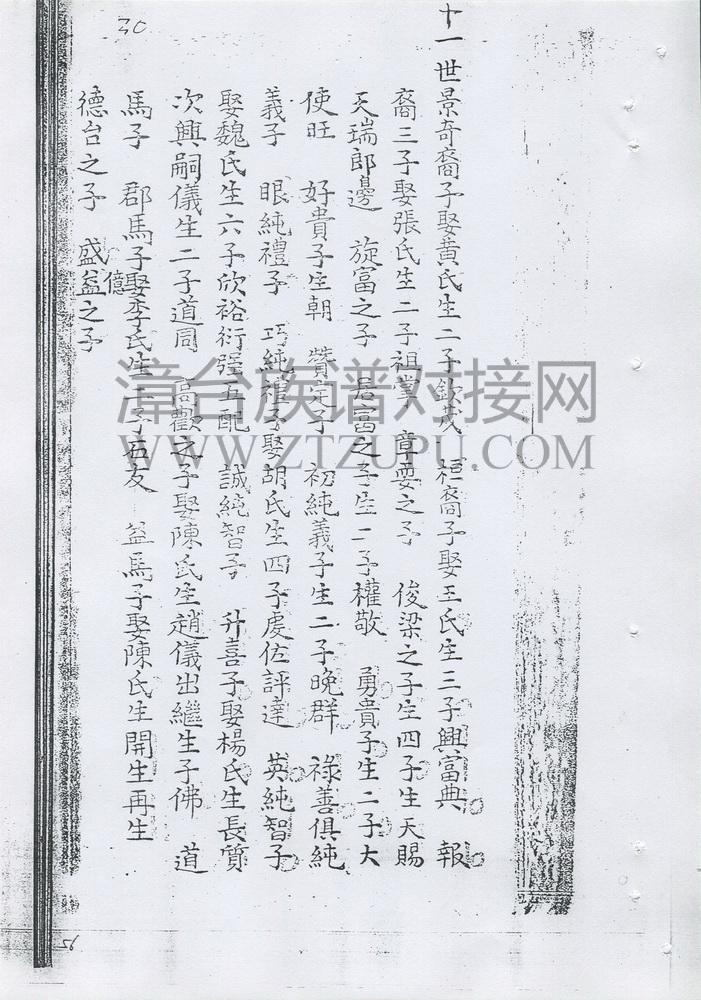 30
十一世景奇裔子娶黄氏生二子欽茂 裔子娶王氏生三子興富典 報
裔三子娶張氏生二子祖業 章耍之子 俊梁之子生四子生天賜
天瑞郎邊 旋富之子 居富之子生二子權敬 勇貴子生二子大
使旺 好貴子生朝 贊定子 初純義子生二子晚群 祿善俱純
義子 眼純禮子 巧純禮子娶胡氏生四子處佐評達 英純智子
娶魏氏生六子欣裕衍强五配 誠純智子 升喜子娶楊氏生長質
次興嗣儀生二子道同 高歡之子娶陳氏生趙儀出繼生子佛 道
馬子 郡馬子娶李氏生子右友 益馬子娶陳氏生開生再生
億
德台之子 盛益之子
漳台族谱对接网
WWW.ZTZUPU.COM
56